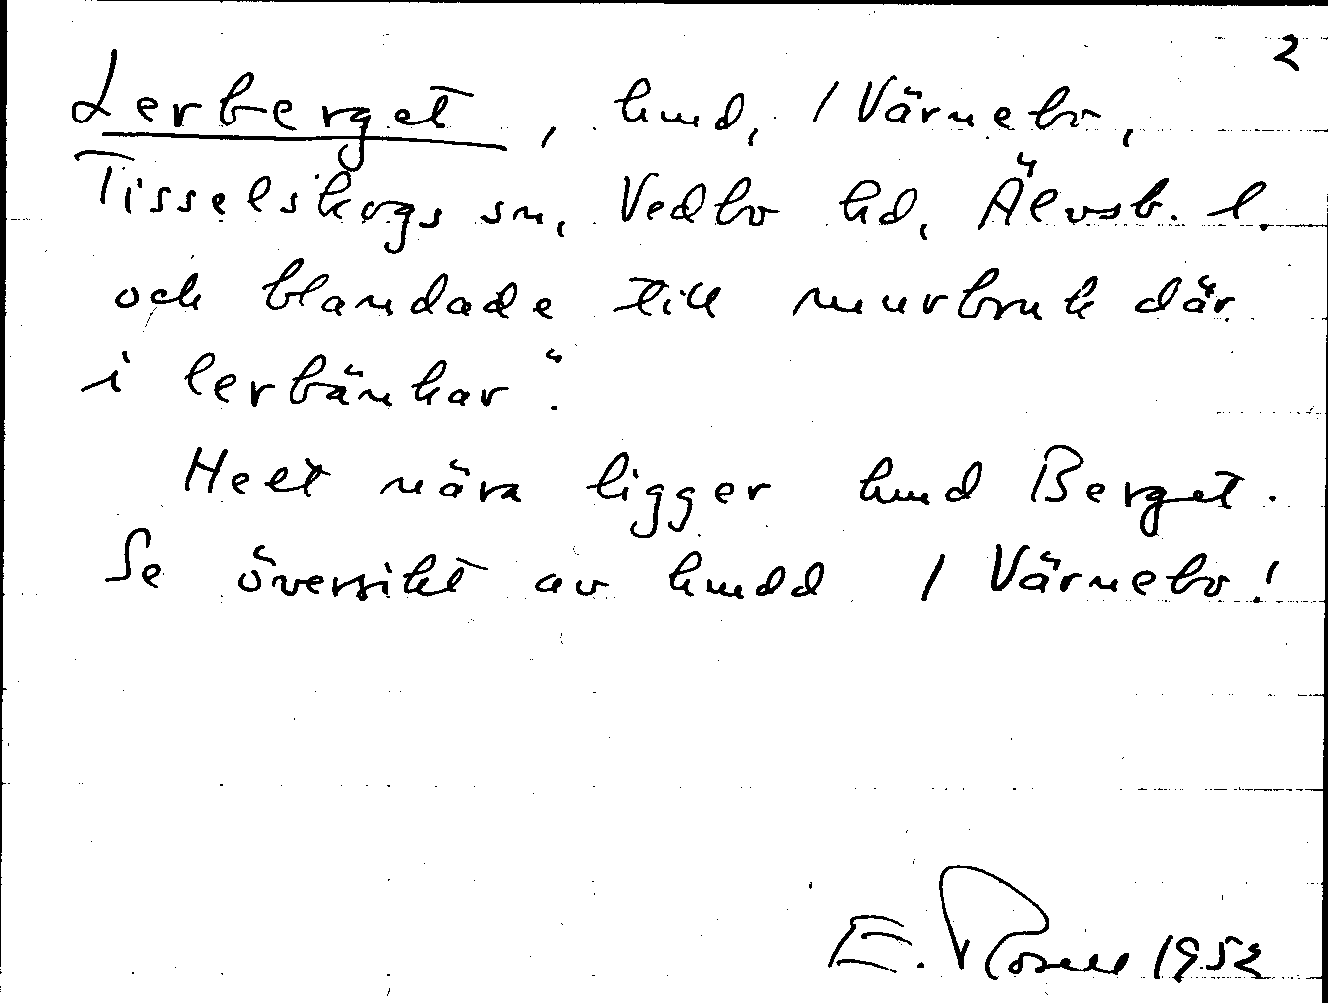 2
Lerberget, hmd, / Värnebo,
Tisselskogs sn, Vedbo hd, Älvsb. l.
och blandade till murbruk där
i lerbänkar".
Helt nära ligger hmd Berget.
Se översikt av hmdd / Värnebo!
E. Rosell 1952